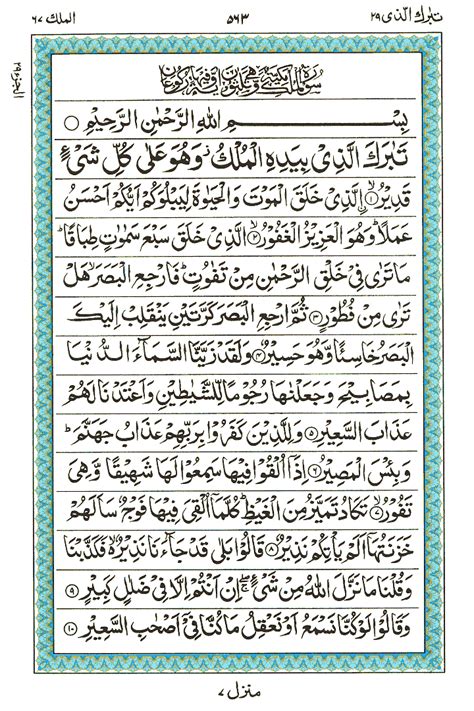 تبرك الذي ٢٩ ٥٦٣ الملك ٦٧
الجزء ٢٩
سُوْرَةُ الْمُلْكِ مَكِّيَّةٌ وَّهِيَ ثَلٰثُوْنَ اٰيَةً وَّفِيْهَا رُكُوْعَانِ
بِسْمِ اللّٰهِ الرَّحْمٰنِ الرَّحِيْمِ ○
تَبٰرَكَ الَّذِيْ بِيَدِهِ الْمُلْكُ ز وَهُوَ عَلٰى كُلِّ شَيْءٍ
قَدِيْرُۨ ۙ﴿۱﴾ الَّذِيْ خَلَقَ الْمَوْتَ وَالْحَيٰوةَ لِيَبْلُوَكُمْ اَيُّكُمْ اَحْسَنُ
عَمَلًا ؕ وَهُوَ الْعَزِيْزُ الْغَفُوْرُ ۙ﴿۲﴾ الَّذِيْ خَلَقَ سَبْعَ سَمٰوٰتٍ طِبَاقًا ؕ
مَا تَرٰى فِيْ خَلْقِ الرَّحْمٰنِ مِنْ تَفٰوُتٍ ؕ فَارْجِعِ الْبَصَرَ ۙ هَلْ
تَرٰى مِنْ فُطُوْرٍ ﴿۳﴾ ثُمَّ ارْجِعِ الْبَصَرَ كَرَّتَيْنِ يَنْقَلِبْ اِلَيْكَ
الْبَصَرُ خَاسِئًا وَّهُوَ حَسِيْرٌ ﴿۴﴾ وَلَقَدْ زَيَّنَّا السَّمَآءَ الدُّنْيَا
بِمَصَابِيْحَ وَجَعَلْنٰهَا رُجُوْمًا لِّلشَّيٰطِيْنِ وَاَعْتَدْنَا لَهُمْ
عَذَابَ السَّعِيْرِ ﴿۵﴾ وَلِلَّذِيْنَ كَفَرُوْا بِرَبِّهِمْ عَذَابُ جَهَنَّمَ ؕ
وَبِئْسَ الْمَصِيْرُ ﴿۶﴾ اِذَاۤ اُلْقُوْا فِيْهَا سَمِعُوْا لَهَا شَهِيْقًا وَّهِيَ
تَفُوْرُ ۙ﴿۷﴾ تَكَادُ تَمَيَّزُ مِنَ الْغَيْظِ ؕ كُلَّمَاۤ اُلْقِيَ فِيْهَا فَوْجٌ سَاَلَهُمْ
خَزَنَتُهَاۤ اَلَمْ يَاْتِكُمْ نَذِيْرٌ ﴿۸﴾ قَالُوْا بَلٰى قَدْ جَآءَنَا نَذِيْرٌ ۙ فَكَذَّبْنَا
وَقُلْنَا مَا نَزَّلَ اللّٰهُ مِنْ شَيْءٍ ۖۚ اِنْ اَنْتُمْ اِلَّا فِيْ ضَلٰلٍ كَبِيْرٍ ﴿۹﴾
وَقَالُوْا لَوْ كُنَّا نَسْمَعُ اَوْ نَعْقِلُ مَا كُنَّا فِيْۤ اَصْحٰبِ السَّعِيْرِ ﴿۱۰﴾
منزل ٧